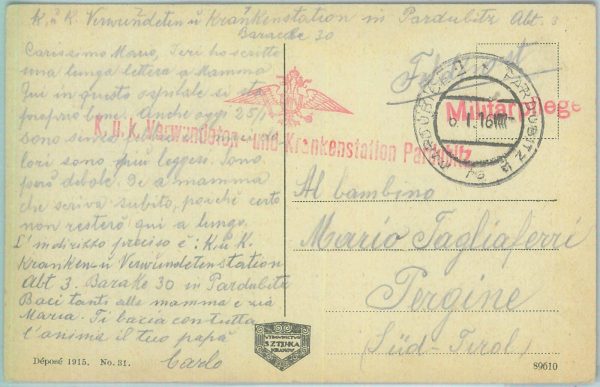 K. u K. Verwundeten u Krankenstation in Pardubitz Abt. 3
Baracke 30
Carissimo Mario, Ieri ho scritto
una lunga lettera a Mamma.
Qui in questo ospitale si sta
proprio bene. Anche oggi 25/1
sono senza
lori sono più leggeri. Sono
però debole. Di' a mamma
che scriva subito, poichè certo
non resterò qui a lungo.
L'indirizzo preciso è: K. u K.
Kranken- u Verwundetenstation
Abt 3. Barake 30 in Pardubitz
Baci tanti alle mamma e zia
Maria. Ti bacia con tutta
l'anima il tuo papà
Carlo
Feldpost
K. u. k. Verwundeten- und Krankenstation Pardubitz
Militärpflege
PARDUBITZ
PARDUBICE
Al bambino
Mario Tagliaferri
Pergine
(Süd Tirol)
WYDAWNICTWO
SZTUKA
KRAKÓW
Déposé 1915. No. 31.
89610